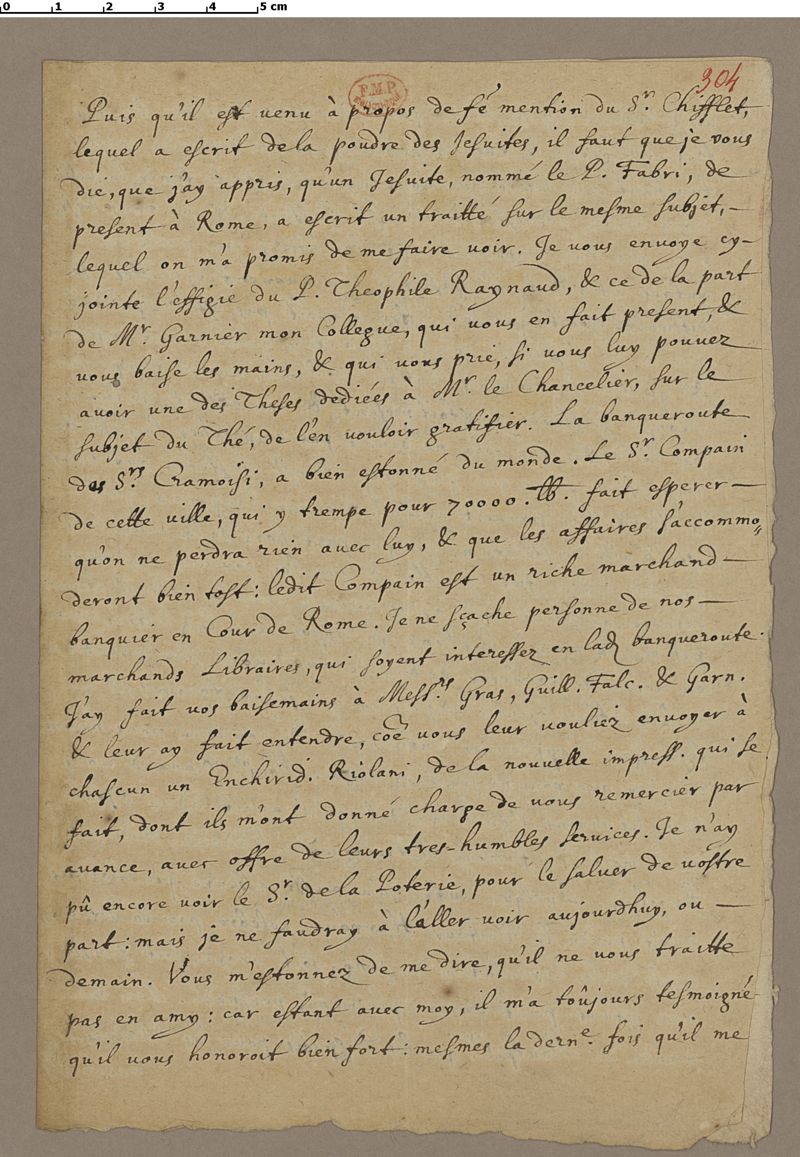 0 1 2 3 4 5 cm
304
F.M.P.
Puis qu'il est venu à propos de fê mention du Sr. Chifflet,
lequel a escrit dela poudre des Jesuites, il faut que je vous
die, que j'ay appris, qu'un Jesuite, nommé le P. Fabri, de
present à Rome, a escrit un traitté sur le mesme subjet,-
lequel on m'a promis de me faire voir. Je vous envoye cy-
jointe l'effigie du P. Theophile Raynaud, & ce de la part
de Mr. Garnier mon Collegue, qui vous en fait present, &
vous baise les mains, & qui vous prie, si vous luy pouvez
avoir une des Theses dediées à Mr. le Chancelier, sur le
subjet du Thé, de l'en vouloir gratifier. La banqueroute
des Srs Cramoisi, a bien estonné du monde. Le Sr. Compain
de cette ville, qui y trempe pour 70000. lb. fait esperer-
qu'on ne perdra rien avec luy, & que les affaires s'accommo=
deront bien tost: ledit Compain est un riche marchand-
banquier en Cour de Rome. Je ne sçache personne de nos-
marchands Libraires, qui soyent interessez en lad. banqueroute.
J'ay fait vos baisemains à Messrs. Gras, Guill. Falc. & Garn.
& leur ay fait entendre, coē vous leur vouliez envoyer à
chascun un Enchirid. Riolani, de la nouvelle impress. qui se
fait, dont ils m'ont donné charge de vous remercier par
avance, avec offre de leurs tres-humbles services. Je n'ay
pû encore voir le Sr. de la Poterie, pour le saluer de vostre
part: mais je ne faudray à l'aller voir aujourdhuy, ou-
demain. Vous m'estonnez de me dire, qu'il ne vous traitte
pas en amy: car estant avec moy, il m'a toûjours tesmoigné
qu'il vous honoroit bien fort: mesmes la derne. fois qu'il me